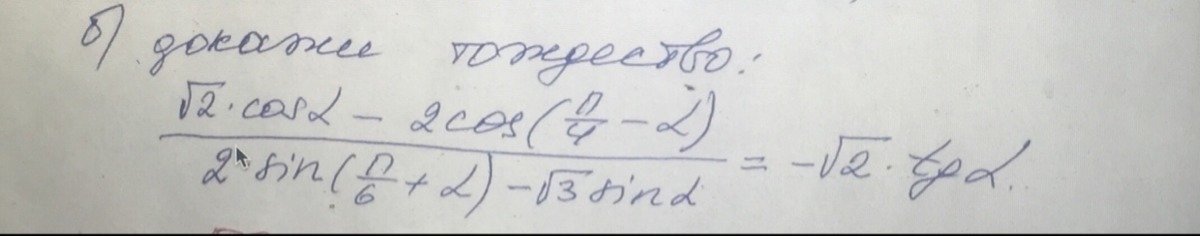 б) докажи тождество:
√2·cosα − 2cos(π/4 − α)
2·sin(π/6 + α) − √3 sinα = −√2·tgα.